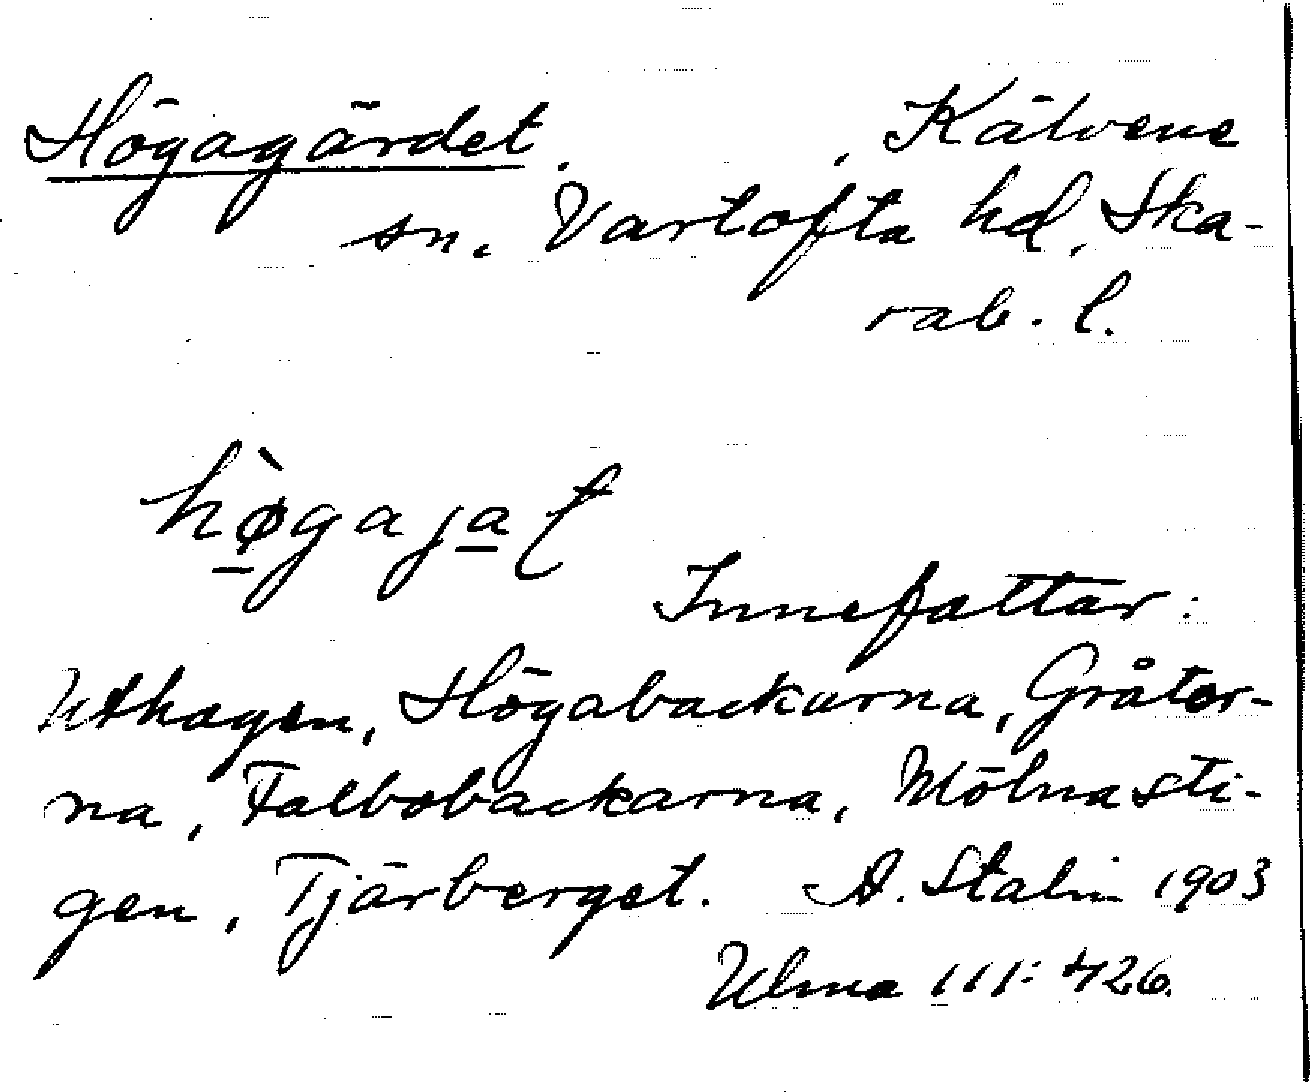 Högagärdet. , Kälvene
sn. Vartofta hd, Ska-
rab. l.
hø̀gajat
Innefattar:
Uthagen, Högabackarna, Gråtor-
na, Falbobackarna, Mölnasti-
gen, Tjärberget. A. Stalin 1903
Ulma 111: 426.